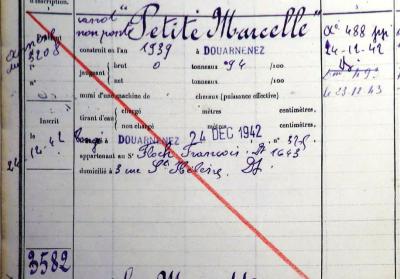 d'inscription.
canot
non ponté "Petite Marcelle"
construit en l'an 1939 à DOUARNENEZ
3208
jaugeant brut 0 tonneaux 94 /100
net tonneaux /100
n°
muni d'une machine de chevaux (puissance effective)
tirant d'eau chargé mètres centimètres.
non chargé mètres centimètres.
Inscrit
le
24
12.42
à DOUARNENEZ 24 DEC 1942 n°
appartenant au Sr Floch François Dz 1643
domicilié à 3 rue Ste Hélène Dz
488
24-12-42
23.12.43
3582